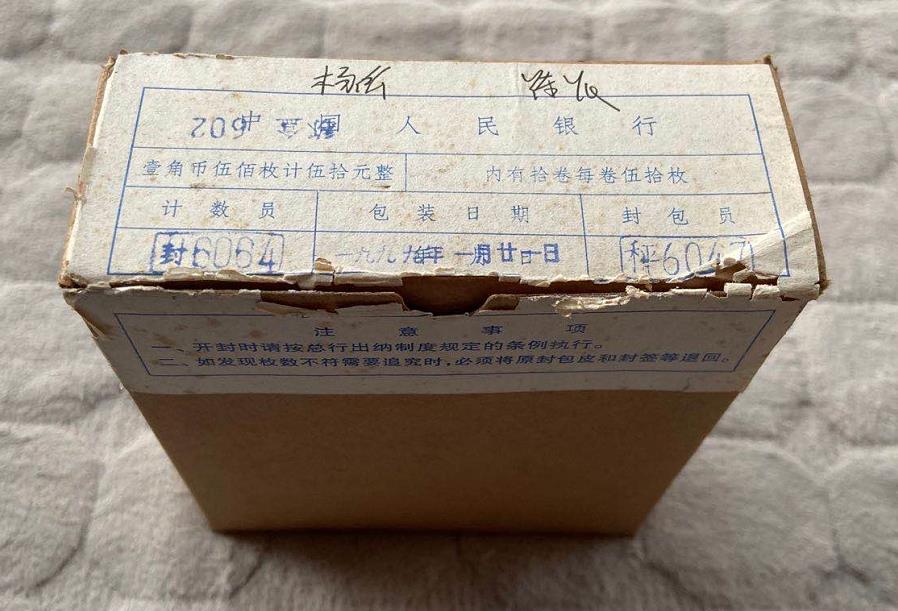 中国人民银行
壹角币伍佰枚计伍拾元整 内有拾卷每卷伍拾枚
计数员 包装日期 封包员
封6064 一九九 年一月廿一日 秤6047
注意事项
一、开封时请按总行出纳制度规定的条例执行。
二、如发现枚数不符需要追究时,必须将原封包皮和封签等退回。